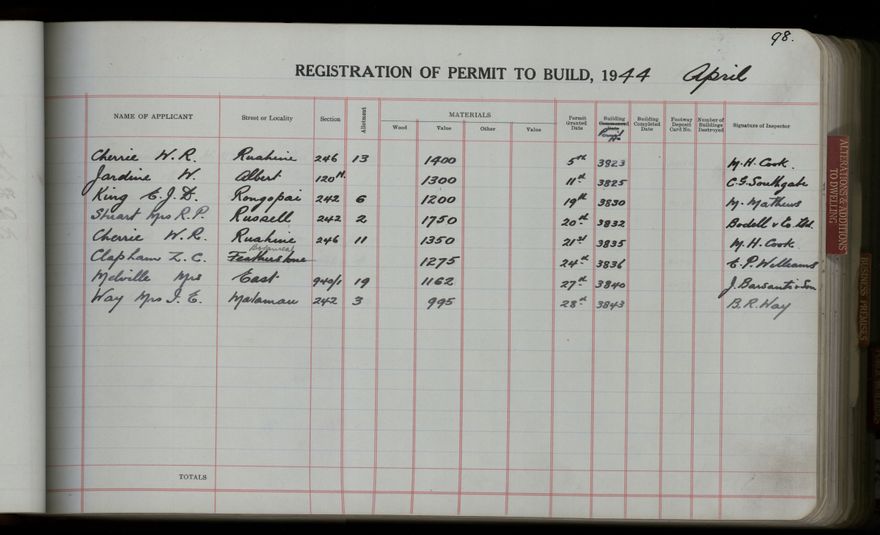 98.
REGISTRATION OF PERMIT TO BUILD, 1944 April
NAME OF APPLICANT Street or Locality Section Allotment MATERIALS Wood Value Other Value Permit Granted Date Building Commenced Permit No. Building Completed Date Footway Deposit Card No. Number of Buildings Destroyed Signature of Inspector
Cherrie W.R. Ruahine 246 13 1400 5th 3823 M.H. Cook.
Jardine W. Albert 120 1300 11th 3825 C.G. Southgate
King C.J.D. Rongopai 242 6 1200 19th 3830 M. Mathews
Stuart Mrs R.P. Russell 242 2 1750 20th 3832 Bodell & Co. Ltd.
Cherrie W.R. Ruahine 246 11 1350 21st 3835 M.H. Cook
Clapham L.C. Featherstone 1275 24th 3836 E.P. Williams
Melville Mrs East 940/1 19 1162 27th 3840 J. Barsanti & Son
Way Mrs I.E. Matamau 242 3 995 28th 3843 B.R. Way
TOTALS
ALTERATIONS & ADDITIONS
TO DWELLING
BUSINESS PREMISES